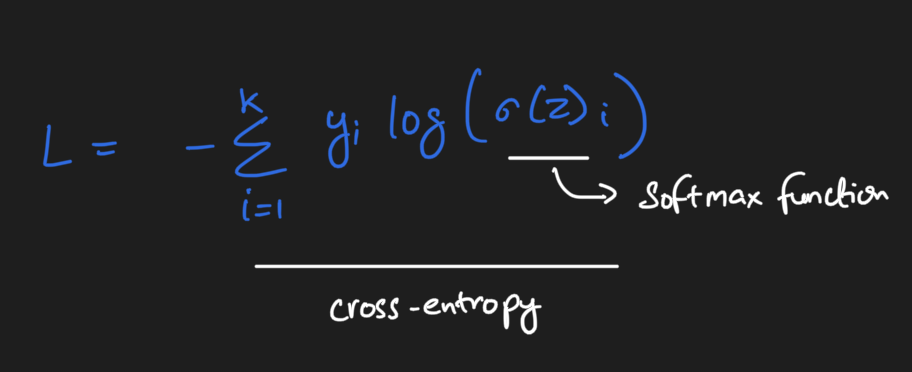 L = - K∑i=1 yi log(σ(z)i)
softmax function
cross-entropy